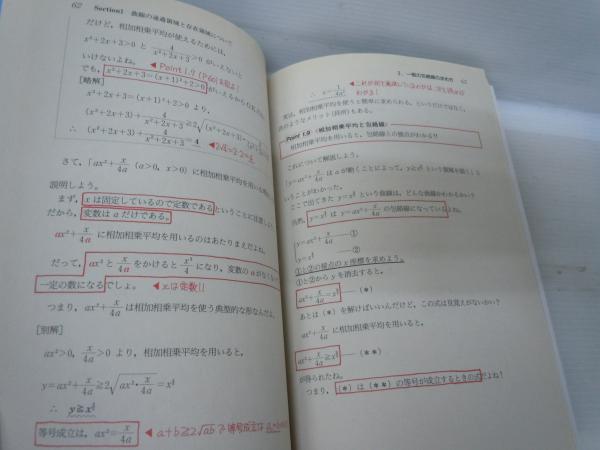 62 Section1 曲線の通過領域と存在領域について
だけど，相加相乗平均が使えるためには，
x²+2x+3>0 と 4/(x²+2x+3)>0 がいえないと
いけないよね。 ◀Point 1.7 (P60)
でも，x²+2x+3=(x+1)²+2>0 がいえるから
[略解]
x²+2x+3=(x+1)²+2>0 より，
(x²+2x+3)+4/(x²+2x+3)≧2√
∴ (x²+2x+3)+4/(x²+2x+3)≧4 ◀2√4=2·2=4
さて，「ax²+x/4a (a>0, x>0) に相加相乗平均を用いる
説明しよう。
まず，x は固定しているので定数である ということに注意
だから，変数は a だけである。
ax²+x/4a に相加相乗平均を用いるのはあたりまえだよね。
だって，ax² と x/4a をかけると x³/4 になり，変数の a がなく
一定の数になるでしょ。 ◀xは定数!!
つまり，ax²+x/4a は相加相乗平均を使う典型的な形なんだよ。
[別解]
ax²>0, x/4a>0 より，相加相乗平均を用いると，
y=ax²+x/4a≧2√(ax²·x/4a)=x^(3/2)
∴ y≧x^(3/2)
等号成立は，ax²=x/4a ◀a+b≧2√ab で等号成立は
2. 一般の包絡線の求め方 63
実は，相加相乗平均を使うと簡単に求められる，というだけではなく，
次のようなメリット（利用）もある。
Point 1.9 〈相加相乗平均と包絡線〉
相加相乗平均を用いると，包絡線との接点がわかる!!
これについて解説しよう。
「y=ax²+x/4a は a が動くことによって，y≧x^(3/2) という領域を動く」と
いうことがわかった。
ここで出てきた y=x^(3/2) という曲線は，どんな曲線かわかるかい？
当然，y=x^(3/2) は y=ax²+x/4a の包絡線になっているよね。
y=ax²+x/4a ——①
y=x^(3/2) ——②
①と②の接点の x 座標を求めよう。
①と②から y を消去すると，
ax²+x/4a=x^(3/2) ——(＊)
あとは（＊）を解けばいいんだけど，この式は見覚えがないかい？
ax²+x/4a に相加相乗平均を用いると，
ax²+x/4a≧x^(3/2) ——(＊＊)
が得られたね。
つまり，（＊）は（＊＊）の等号が成立するときの式だよね！